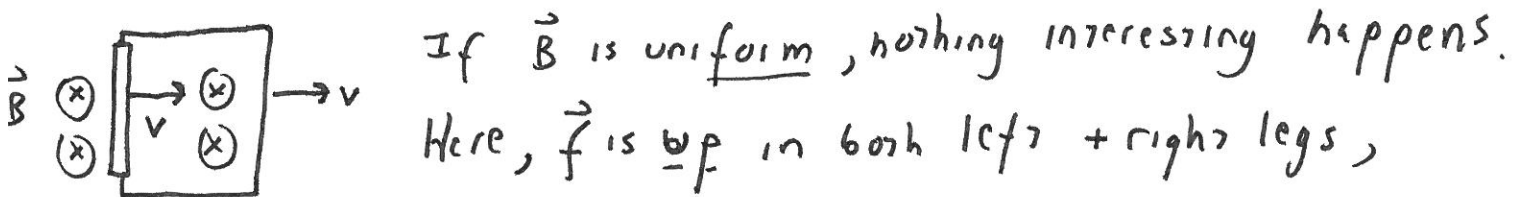 If B⃗ is uniform, nothing interesting happens.
B⃗ ⊗ ⊗ v → v
⊗ ⊗
Here, f⃗ is up in both left + right legs,